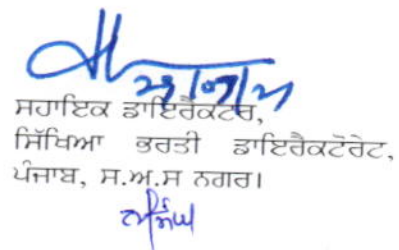 ਸਹਾਇਕ ਡਾਇਰੈਕਟਰ,
ਸਿੱਖਿਆ ਭਰਤੀ ਡਾਇਰੈਕਟੋਰੇਟ,
ਪੰਜਾਬ, ਸ.ਅ.ਸ ਨਗਰ।